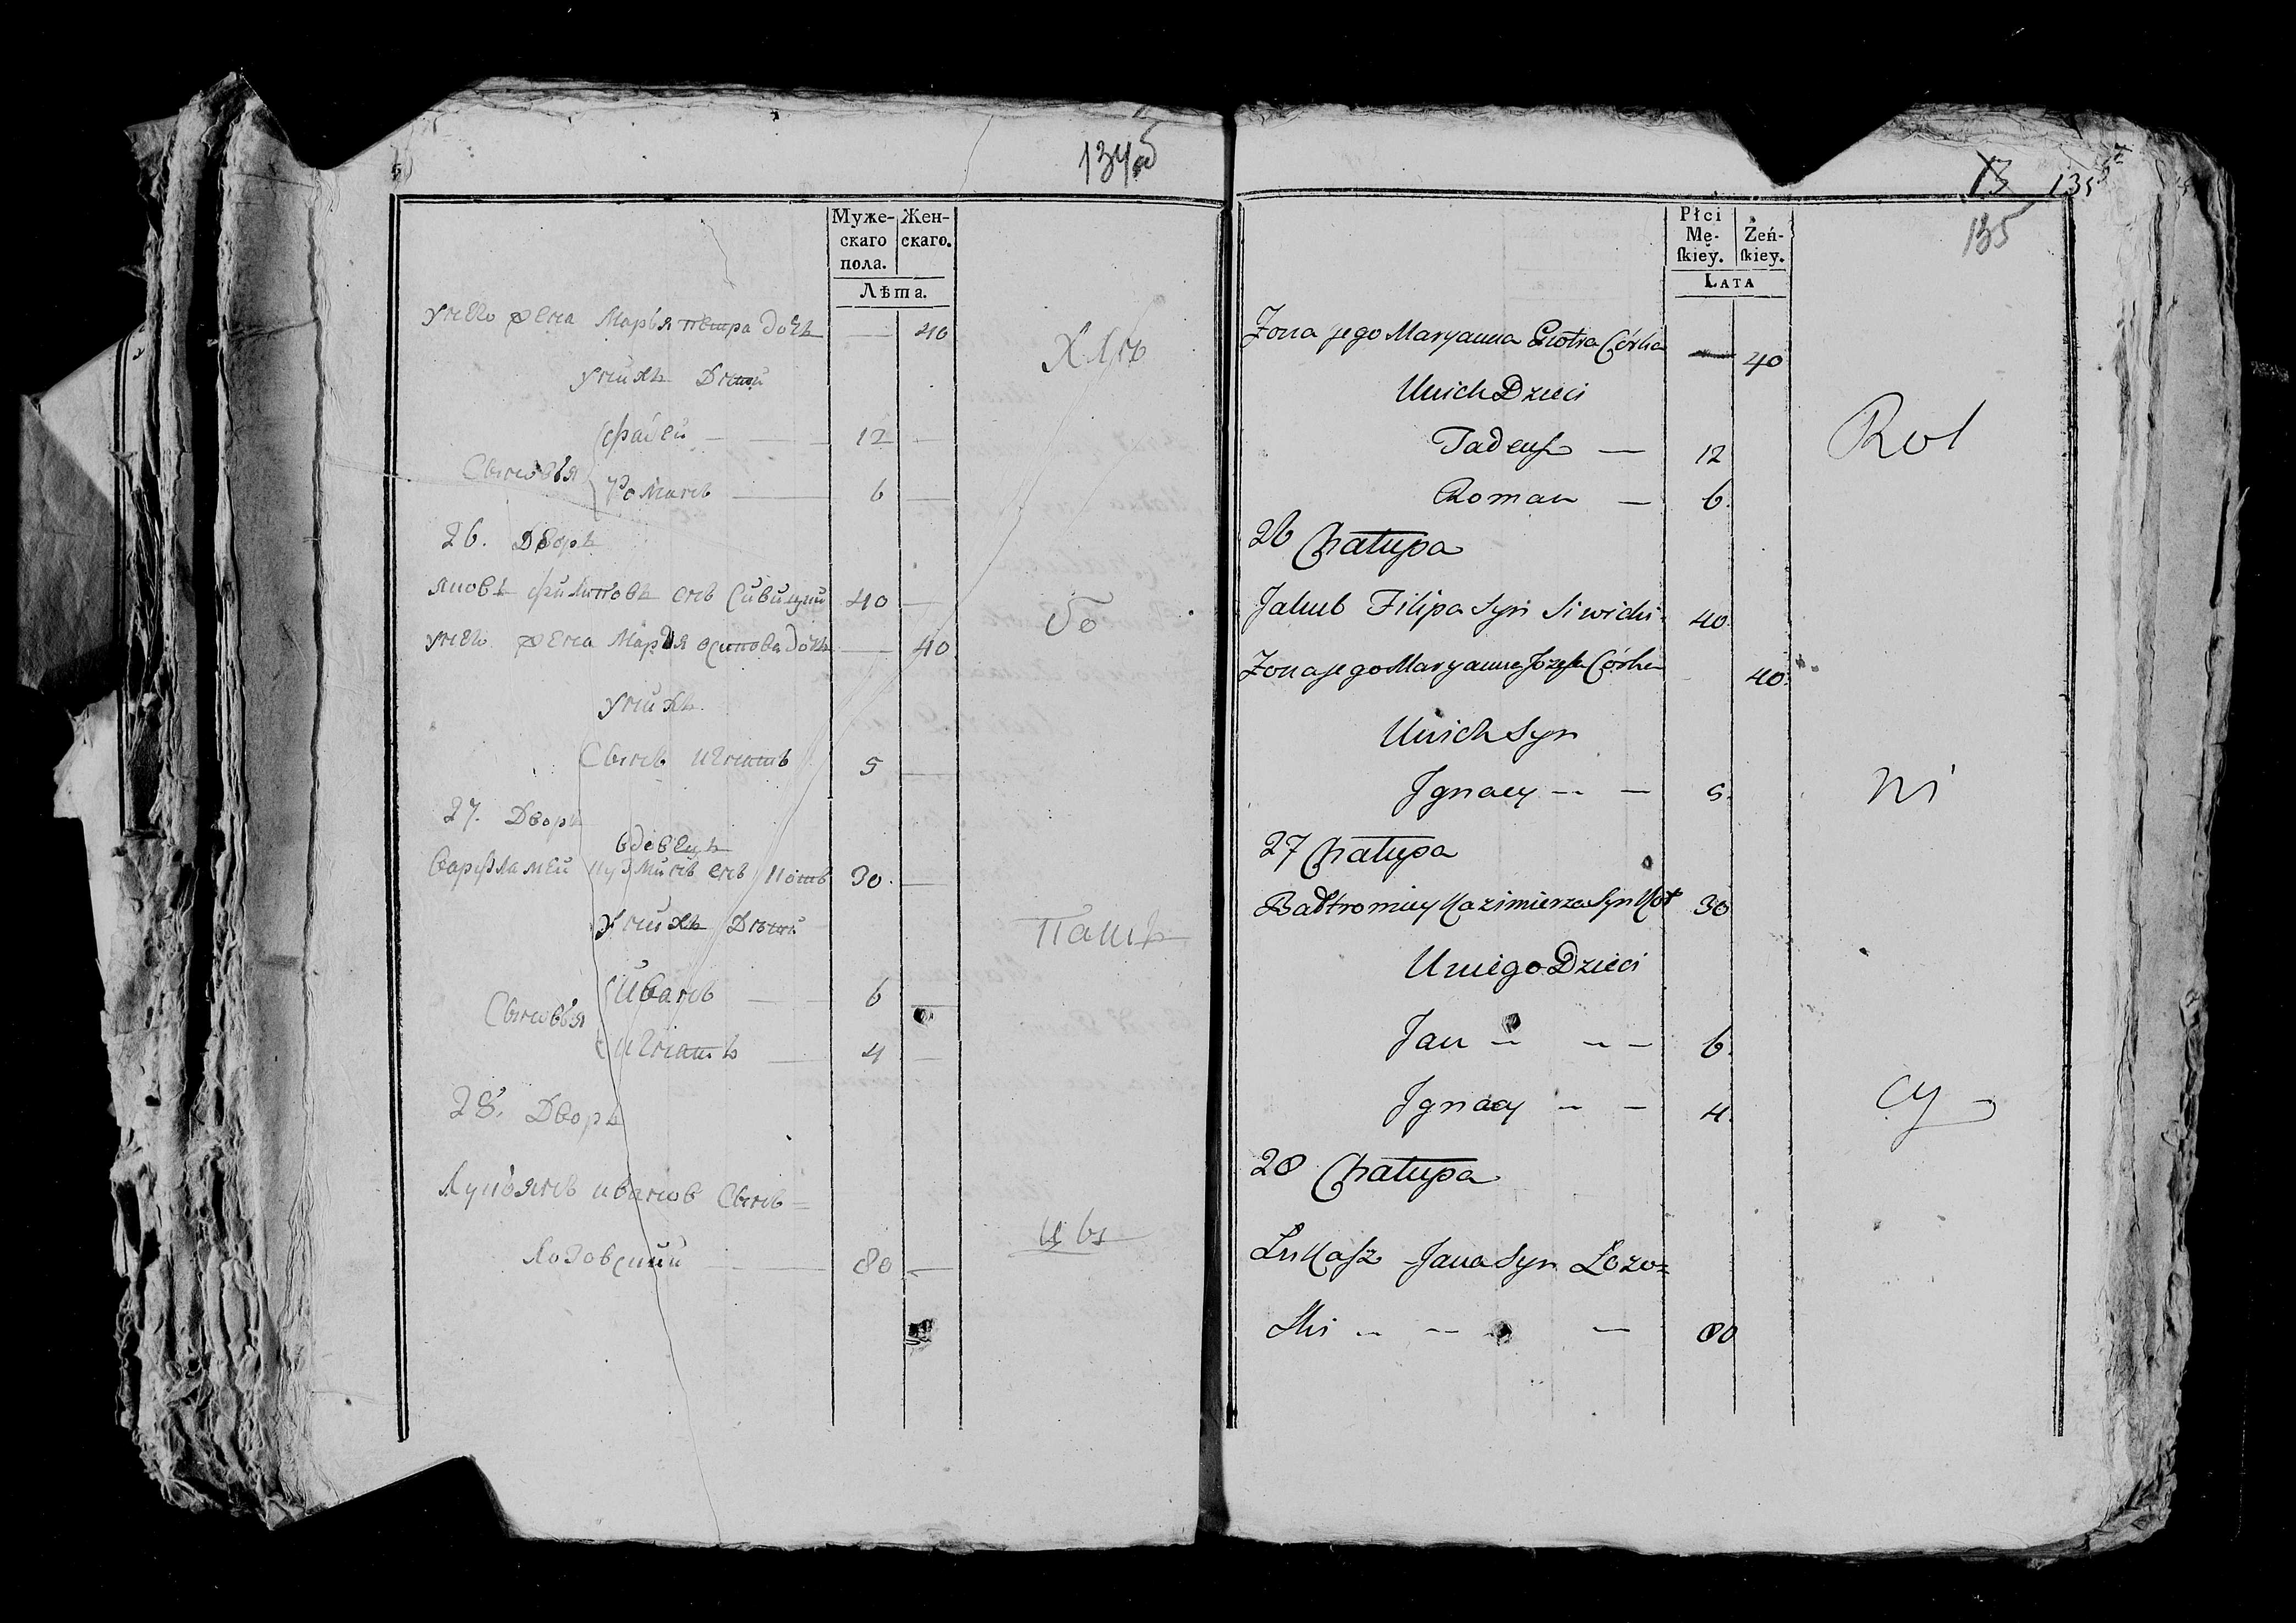 134об
Муже-
скаго
пола.
Жен-
скаго.
Лѣта.
унего жена Марья петра дочь — 40
Хлѣ
унихъ Дѣти
Сыновья
фадей — 12 —
Романъ — 6 —
26. Дворъ
яковъ филиповъ снъ Сивицкий 40 —
бо
унего жена Марья осипова дочь — 40
унихъ
Сынъ игнатъ 5 —
27. Дворъ
вдовецъ
варфламей кузминъ снъ Котъ 30. —
унихъ Дѣти
Пашъ
Сыновья
Иванъ — 6 —
игнатъ — 4 —
28. Дворъ
Лукьянъ ивановъ Сынъ =
цы
Лозовский — 80 —
13 135
135
Płci
Mę-
ſkiey.
Żeń-
ſkiey.
Lata
Zona jego Maryanna Piotra Córka — 40
Unich Dzieci
Rol
Tadeusz — 12
Roman — 6.
26 Chałupa
Jakub Filipa Syn Siwicki 40.
Zona jego Maryanna Józefa Córka 40.
Unich Syn
Ignacy — — 5.
ni
27 Chałupa
Bałtromiey Kazimierza Syn Kot 30
Uniego Dzieci
Jan — — 6.
Ignacy — — 4.
cy
28 Chałupa
Łukasz Jana Syn Łozo=
ski — — — 80